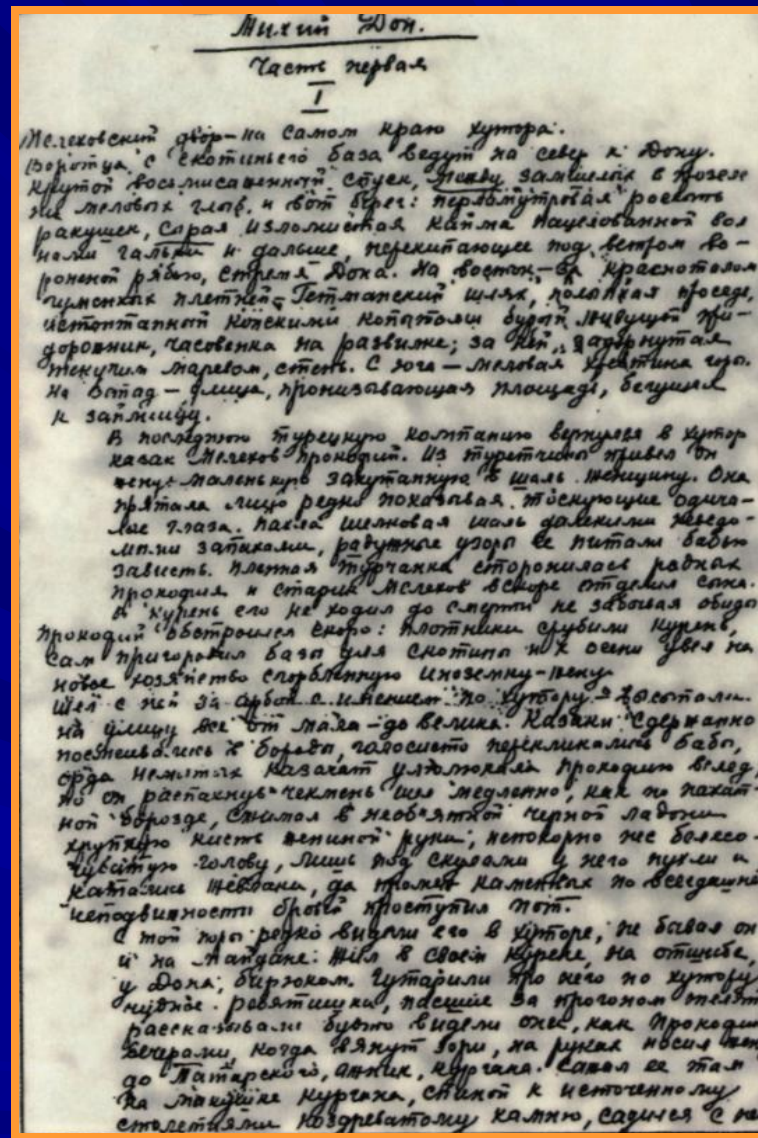 Тихий Дон.
Часть первая
I
Мелеховский двор – на самом краю хутора.
Воротца с скотиньего база ведут на север к Дону.
Крутой восьмисаженный спуск, между замшелых в прозелени
меловых глыб, и вот берег: перламутровая россыпь
ракушек, серая изломистая кайма нацелованной вол
нами гальки и дальше, перекипающее под ветром во-
роненой рябью, стремя Дона. На восток – за красноталом
гуменных плетней – Гетманский шлях, полынная проседь,
истоптанный конскими копытами бурый, живущой при-
дорожник, часовенка на развилке; за ней, задернутая
текучим маревом, степь. С юга – меловая хребтина горы.
На запад – улица, пронизывающая площадь, бегущая
к займищу.
В последнюю турецкую компанию вернулся в хутор
казак Мелехов Прокофий. Из туретчины привел он
жену маленькую закутанную в шаль женщину. Она
прятала лицо редко показывая тоскующие одича-
лые глаза. Пахла шелковая шаль далекими неведо-
мыми запахами, радужные узоры ее питали бабью
зависть. Пленная турчанка сторонилась родных
Прокофия и старик Мелехов вскоре отделил сына.
В курень его не ходил до смерти не забывая обиды
Прокофий обстроился скоро: плотники срубили курень,
сам пригородил базы для скотины и к осени увел на
новое хозяйство сгорбленную иноземку-жену.
Шел с ней за арбой с имением по хутору – высыпали
на улицу все от мала – до велика. Казаки сдержанно
посмеивались в бороды, голосисто перекликались бабы,
орда немытых казачат улюлюкала Прокофию вслед,
но он распахнув чекмень шел медленно, как по пахат-
ной борозде, сжимал в необъятной черной ладони
хрупкую кисть жениной руки, непокорно нес белесо-
чубатую голову, лишь под скулами у него пухли и
катались желваки, да промеж каменных по всегдашней
неподвижности бровей проступил пот.
С той поры редко видели его в хуторе, не бывал он
и на майдане. Жил в своем курене, на отшибе,
у Дона, бирюком. Гутарили про него по хутору
чудное. Ребятишки, пасшие за прогоном телят
рассказывали будто видели они, как Прокофий
вечерами, когда вянут зори, на руках носил жену
до Татарского, ажник, кургана. Сажал ее там
на макушке кургана, спиной к источенному
столетиями ноздреватому камню, садился с ней